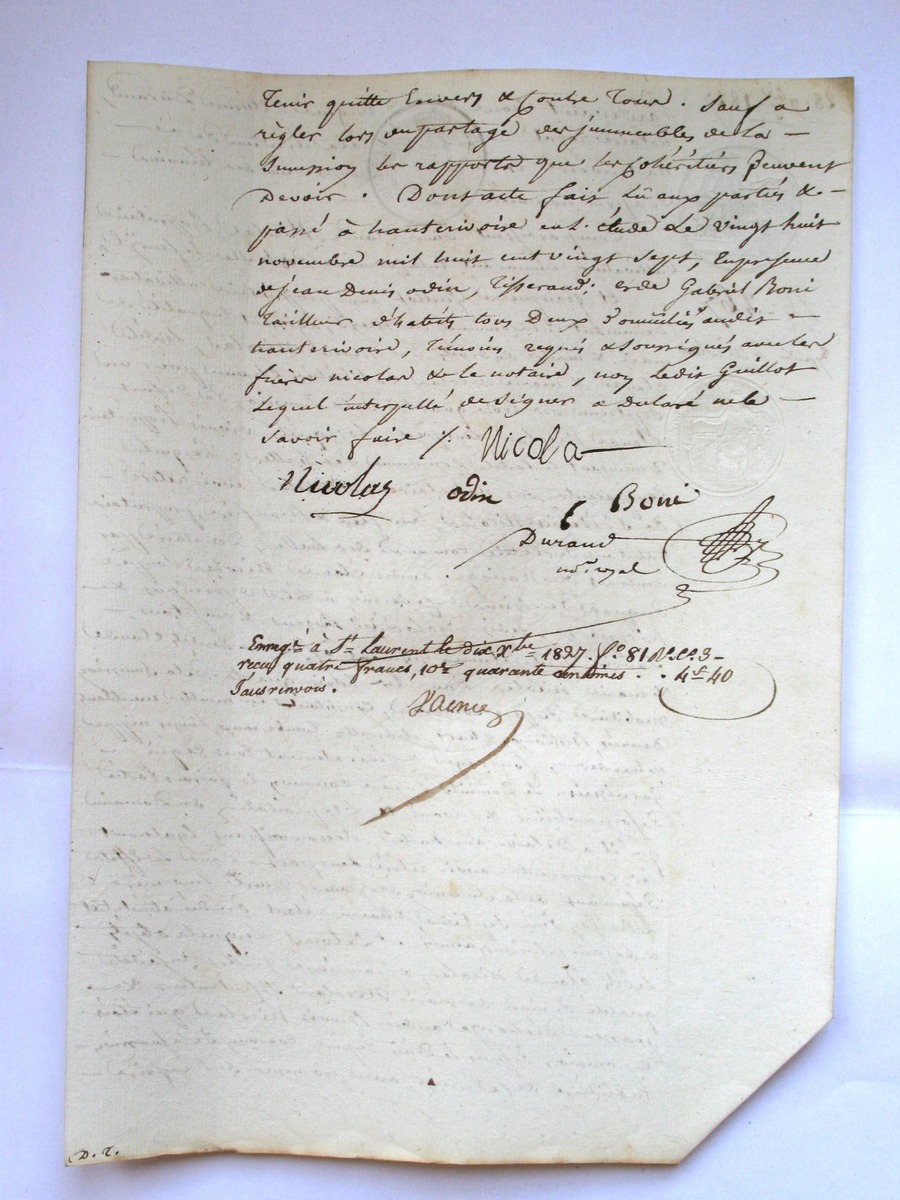 Tenir quitte Envers & Contre Tous. Sauf a
règler lors du partage des jmmeubles de La —
Succession les rapports que les Cohéritiers Peuvent
Devoir. Dont acte fait Lû aux parties & —
passé à hauterivoire en L'étude Le vingt huit
novembre mil huit cent vingt sept, En presence
de Jean Denis odin, Tisserand; et de Gabriel Boni
Tailleur d'habits tous Deux Domiciliés audit —
hauterivoire, Témoins requis & soussignés avec les
frères nicolas & le notaire, non Ledit Guillot
Lequel interpellé de signer a Declaré ne le —
savoir faire /.
Nicola
Nicolas odin Boni
Durand
no.re royal
Enreg.é à S.t Laurent le dix X.bre 1827 f.o 81 R.o C.e 3 —
recu quatre francs, 10.e quarante centimes . . 4f 40
D. T.